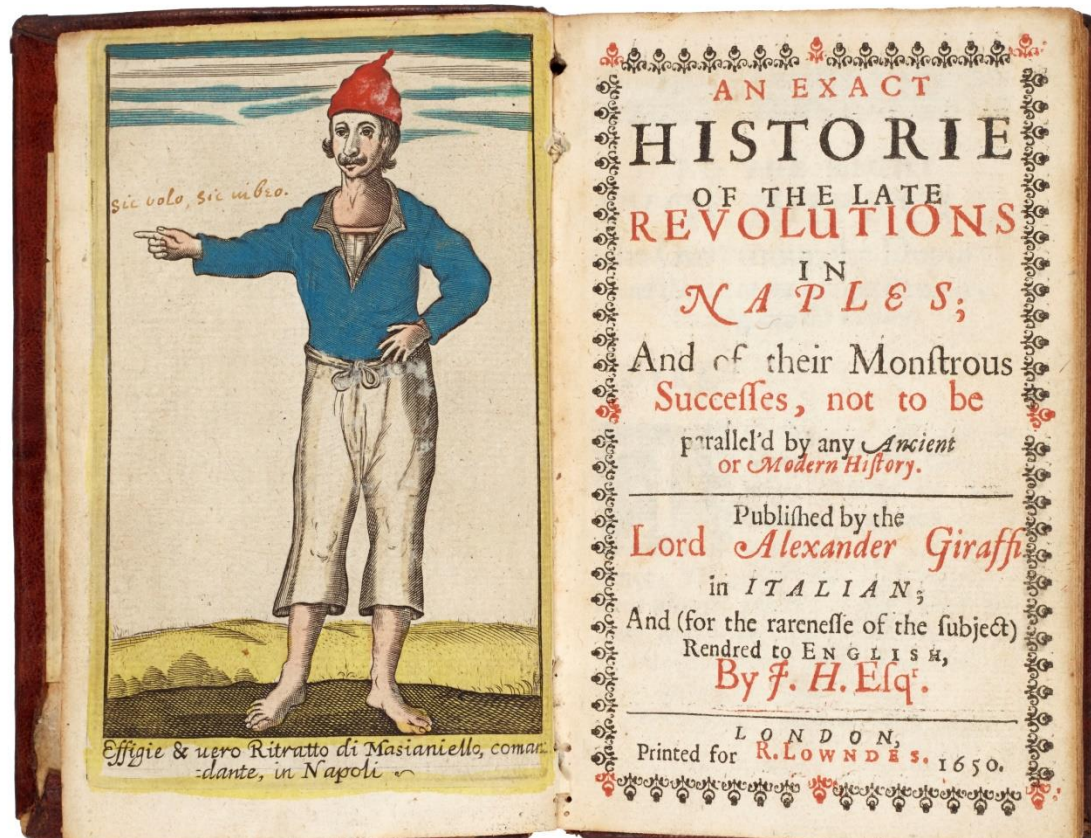 Sic volo, sic iubeo.
Effigie & uero Ritratto di Masianiello, coman:
:dante, in Napoli
AN EXACT
HISTORIE
OF THE LATE
REVOLUTIONS
IN
NAPLES;
And of their Monſtrous
Succeſſes, not to be
parallel'd by any Ancient
or Modern Hiſtory.
Publiſhed by the
Lord Alexander Giraffi
in ITALIAN;
And (for the rareneſſe of the ſubject)
Rendred to ENGLISH,
By J. H. Eſqr.
LONDON,
Printed for R. LOWNDES. 1650.